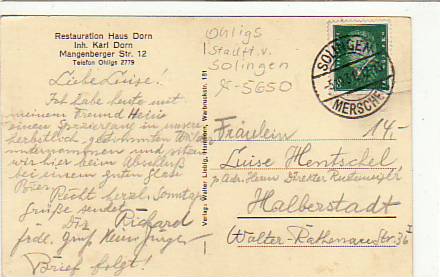 Restauration Haus Dorn
Inh. Karl Dorn
Mangenberger Str. 12
Telefon Ohligs 2779
Ohligs
Stadtt. v.
Solingen
SOLINGEN
MERSCHEID
Liebe Luise!
Ich habe heute mit
meinem Freund Heini
einen Spaziergang in unsere
herbstlich gestimmten
unternommen und
wir hier beim Abschluß
bei einem guten Glase
Bier.
Recht herzl. Sonntags-
grüße sendet
Dir Richard
frdl. Gruß
Brief folgt!
Verlag: Walter Liebig, Warbruckstr. 151
14-
Fräulein
Luise Hentschel
p. Adr. Herrn Direktor
Halberstadt
Walter-Rathenau Str. 36 I